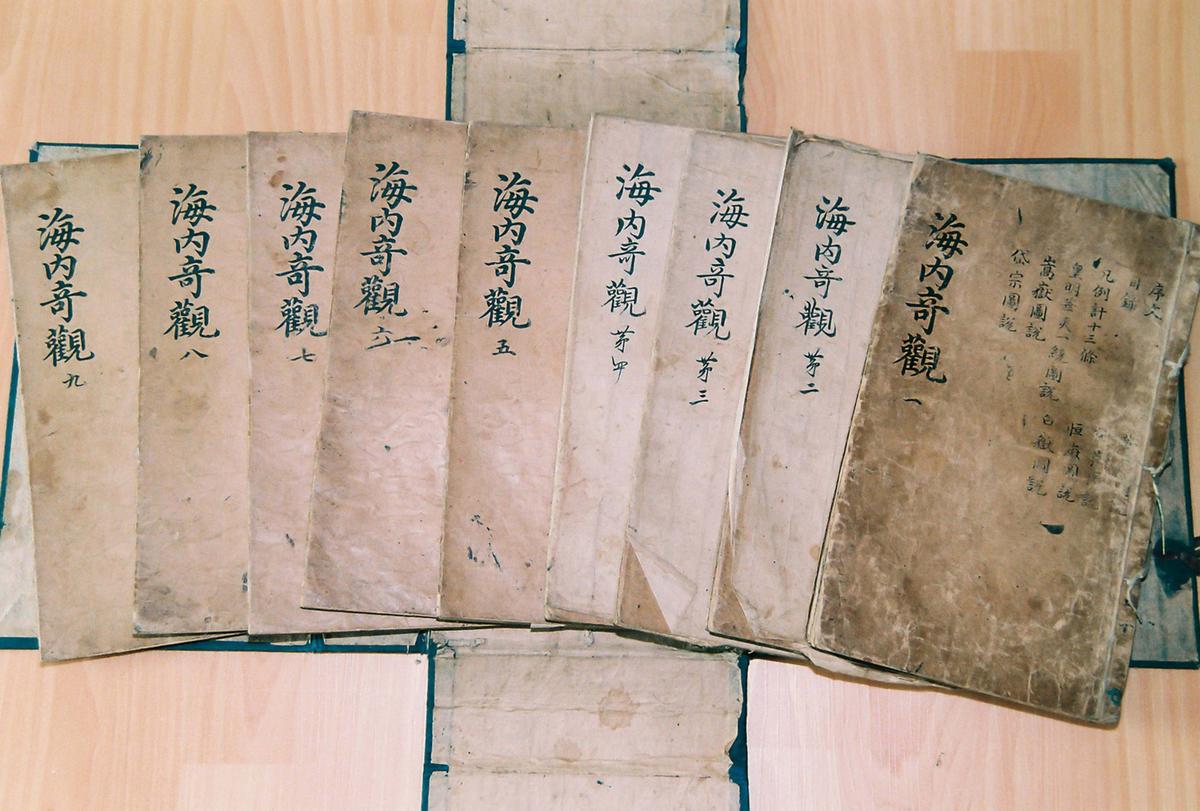 海内奇觀 一
序文
目録
凡例計十三條
皇明一統圖說
嵩嶽圖說
岱宗圖說
恒嶽圖說
白嶽圖說
海内奇觀 茅二
海内奇觀 茅三
海内奇觀 茅四
海内奇觀 五
海内奇觀 六
海内奇觀 七
海内奇觀 八
海内奇觀 九